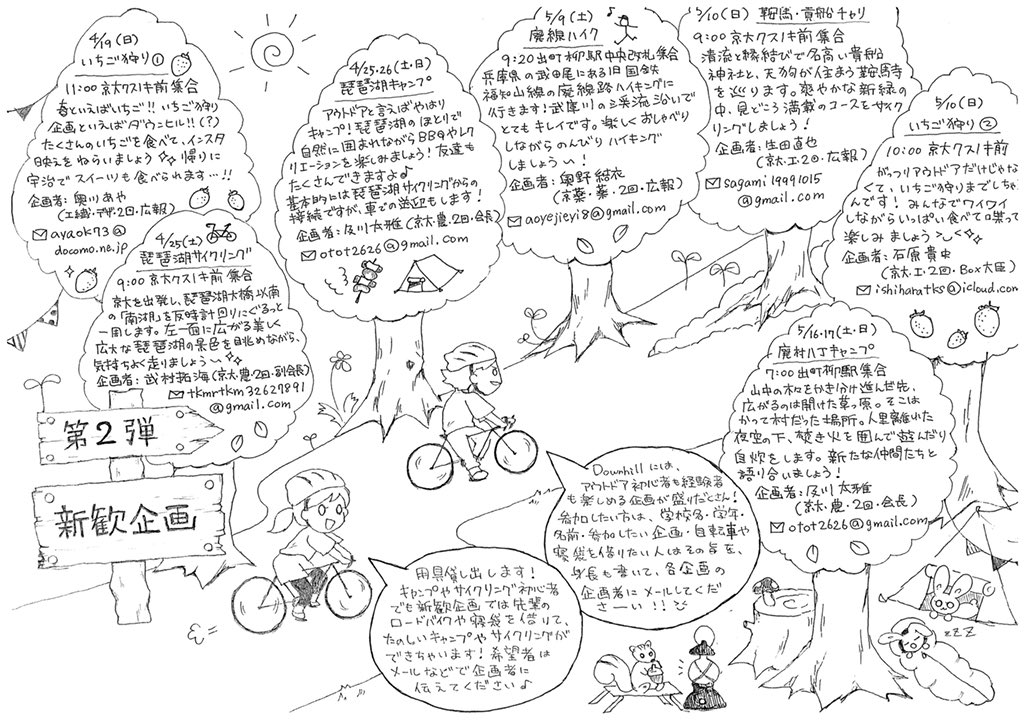 4/19(日)
いちご狩り①
11:00 京大クスノキ前集合
春といえばいちご!! いちご狩り
企画といえばダウンヒル!!(?)
たくさんのいちごを食べて、インスタ
映えをねらいましょう 帰りに
宇治でスイーツも食べられます…!!
企画者:奥川あや
(工繊・デザ・2回・広報)
ayaok73@
docomo.ne.jp
4/25(土)
琵琶湖サイクリング
9:00 京大クスノキ前 集合
京大を出発し、琵琶湖大橋以南
の「南湖」を反時計回りにぐるっと
一周します。左一面に広がる美しく
広大な琵琶湖の景色を眺めながら、
気持ちよく走りましょう〜
企画者:武村拓海(京大・農・2回・副会長)
tkmrtkm32627891
@gmail.com
第2弾
新歓企画
4/25・26(土・日)
琵琶湖キャンプ
アウトドアと言えばやはり
キャンプ!琵琶湖のほとりで
自然に囲まれながらBBQやレク
リエーションを楽しみましょう!友達も
たくさんできますよ♪
基本的には琵琶湖サイクリングからの
接続ですが、車での送迎もします!
企画者:及川太雅(京大・農・2回・会長)
otot2626@gmail.com
5/9(土)
廃線ハイク
9:20 出町柳駅中央改札集合
兵庫県の武田尾にある旧国鉄
福知山線の廃線路ハイキングに
行きます!武庫川の渓流沿いで
とてもキレイです。楽しくおしゃべり
しながらのんびりハイキング
しましょう〜!
企画者:奥野結衣
(京薬・薬・2回・広報)
aoyejieyi8@gmail.com
5/10(日) 鞍馬・貴船チャリ
9:00 京大クスノキ前 集合
清流と縁結びで名高い貴船
神社と、天狗が住まう鞍馬寺
を巡ります。爽やかな新緑の
中、見どころ満載のコースをサイク
リングしましょう!
企画者:生田直也
(京大・工・2回・広報)
sagami19991015
@gmail.com
5/10(日)
いちご狩り②
10:00 京大クスノキ前
がっつりアウトドアだけじゃな
くて、いちご狩りまでしちゃ
んです! みんなでワイワイ
しながらいっぱい食べて喋って
楽しみましょう>◡<
企画者:石原貴史
(京大・工・2回・Box大臣)
ishiharatks@icloud.com
5/16・17(土・日)
廃村八丁キャンプ
7:00 出町柳駅集合
山中の木々をかき分け進んだ先、
広がるのは開けた草っ原。そこは
かつて村だった場所。人里離れた
夜空の下、焚き火を囲んで遊んだり
自炊をします。新たな仲間たちと
語り合いましょう!
企画者:及川太雅
(京大・農・2回・会長)
otot2626@gmail.com
Downhillには、
アウトドア初心者も経験者
も楽しめる企画が盛りだくさん!
参加したい方は、学校名・学年・
名前・参加したい企画・自転車や
寝袋を借りたい人はその旨を、
身長も書いて、各企画の
企画者にメールしてくだ
さーい!!
用具貸し出します!
キャンプやサイクリング初心者
でも新歓企画では先輩の
ロードバイクや寝袋を借りて、
たのしいキャンプやサイクリングが
できちゃいます!希望者は
メールなどで企画者に
伝えてください♪
zzZ